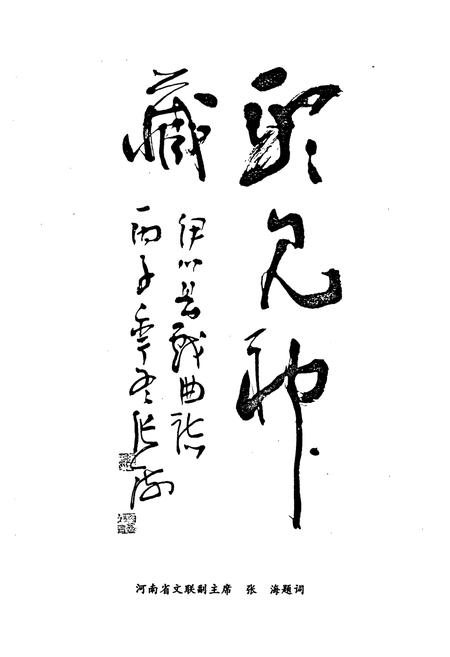 见神
藏
伊川县戏曲志
丙子季冬张海
河南省文联副主席 张 海题词